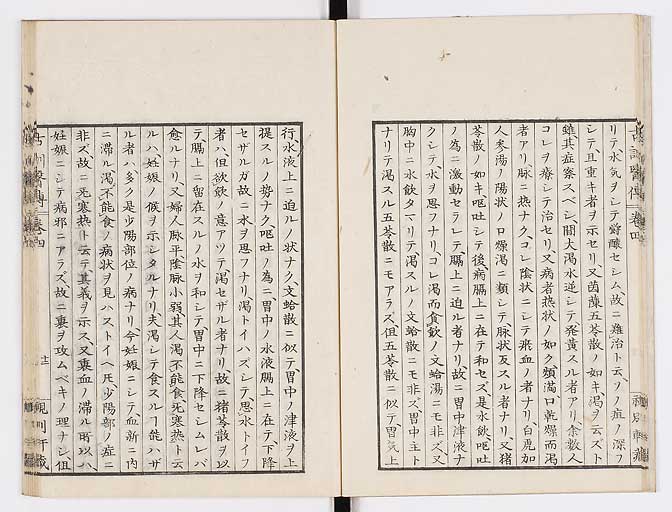 リテ、水氣ヲシテ欝釀セシム、故ニ難治ト云フ、ノ症ノ深フ
シテ、且重キ者ヲ示セリ、又茵蔯五苓散ノ如キ、渇ヲ云ズト
雖、其症察スベシ、間大渇水逆シテ發黄スル者アリ、余數人
コレヲ療シテ治セリ、又病者熱狀ノ如ク煩滿口乾燥而渇
者アリ、脉ニ熱ナク、コレ陰狀ニシテ瘀血ノ者ナリ、白虎加
人参湯ノ陽狀ノ口燥渇ニ類シテ、脉狀反スル者ナリ、又猪
苓散ノ如キ、嘔吐シテ後病膈上ニ在テ和セズ、是水飲、嘔吐
ノ為ニ激動セラレテ、膈上ニ迫ル者ナリ、故ニ胃中津液ナ
クシテ、水ヲ思フナリ、コレ渇而貪飲ノ文蛤湯ニモ非ズ、又
胸中ニ水飲タマリテ渇スルノ文蛤散ニモ非ズ、胃中主ト
ナリテ渇スル五苓散ニモアラズ、但五苓散ニ似テ胃氣上
行、水液上ニ迫ルノ狀ナク、文蛤散ニ似テ、胃中ノ津液ヲ上
提スルノ勢ナク、嘔吐ノ為ニ胃中ノ水液膈上ニ在テ、下降
セザルガ故ニ、水ヲ思フナリ、渇トイハズシテ、思水トイフ
者ハ、但欲飲ノ意アツテ、渇セザル者ナリ、故ニ猪苓散ヲ以
テ、膈上ニ留在スルノ水ヲ和シテ、胃中ニ下降セシムレバ
愈ルナリ、又婦人脉平、陰脉小弱、其人渇不能食、无寒熱ト云
ルハ、妊娠ノ候ヲ示シタルナリ、夫渇シテ食スルヿ能ハザ
ル者ハ、多ク是少陽部位ノ病ナリ、今妊娠ニシテ血新ニ内
ニ滯ル、渇不能食ノ病狀ヲ見ハストイヘ𪜈、少陽部ノ症ニ
非ズ、故ニ无寒熱ト云テ其義ヲ示ス、又裏血ノ滯ル所以ハ、
妊娠ニシテ病邪ニアラズ、故ニ裏ヲ攻ムベキノ理ナシ、但